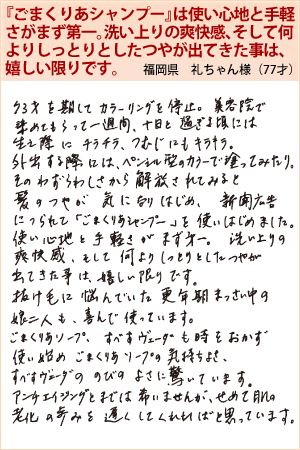 『ごまくりあシャンプー』は使い心地と手軽
さがまず第一。洗い上りの爽快感、そして何
よりしっとりとしたつやが出てきた事は、
嬉しい限りです。 福岡県 礼ちゃん様（77才）
73才を期してカラーリングを停止。美容院で
染めてもらって一週間、十日と過ぎる頃には
生え際にチラチラ、つむじにもキラキラ。
外出する際には、ペンシル型のカラーで塗ってみたり。
そのわずらわしさから解放されてみると
髪のつやが気になりはじめ、新聞広告
につられて「ごまくりあシャンプー」を使いはじめました。
使い心地と手軽さがまず第一。洗い上りの
爽快感、そして何よりしっとりとしたつやが
出てきた事は、嬉しい限りです。
抜け毛に悩んでいた更年期まっさい中の
娘二人も、喜んで使っています。
ごまくりあソープ、すべすヴェーダも時をおかず
使い始めごまくりあソープの気持ちよさ、
すべすヴェーダののびのよさに驚いています。
アンチエイジングとまでは希いませんが、せめて肌の
老化の歩みを遅くしてくれればと思っています。